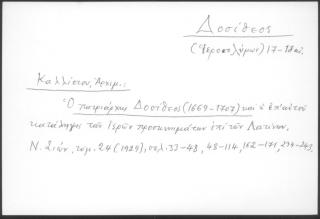 Δοσίθεος
(Ἱεροσολύμων) 17-18 αἰ.
Καλλίστου, Ἀρχιμ.:
Ὁ πατριάρχης Δοσίθεος (1669-1707) καὶ ἡ ἐπ' αὐτοῦ
κατάληψις τῶν Ἱερῶν προσκυνημάτων ἐπὶ τῶν Λατίνων.
Ν. Σιών, τόμ. 24 (1929), σελ. 33-48, 48-114, 162-171, 234-243.